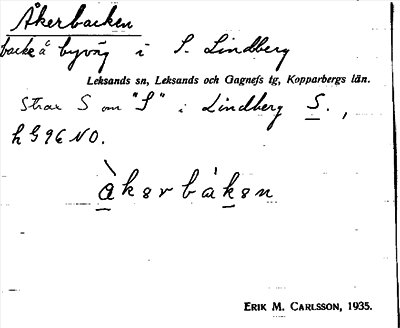 Åkerbacken
backe å byväg i S. Lindberg
Leksands sn, Leksands och Gagnefs tg, Kopparbergs län.
Strax S om "S" i Lindberg S.,
h G96 NO.
àkərbàkən
ERIK M. CARLSSON, 1935.